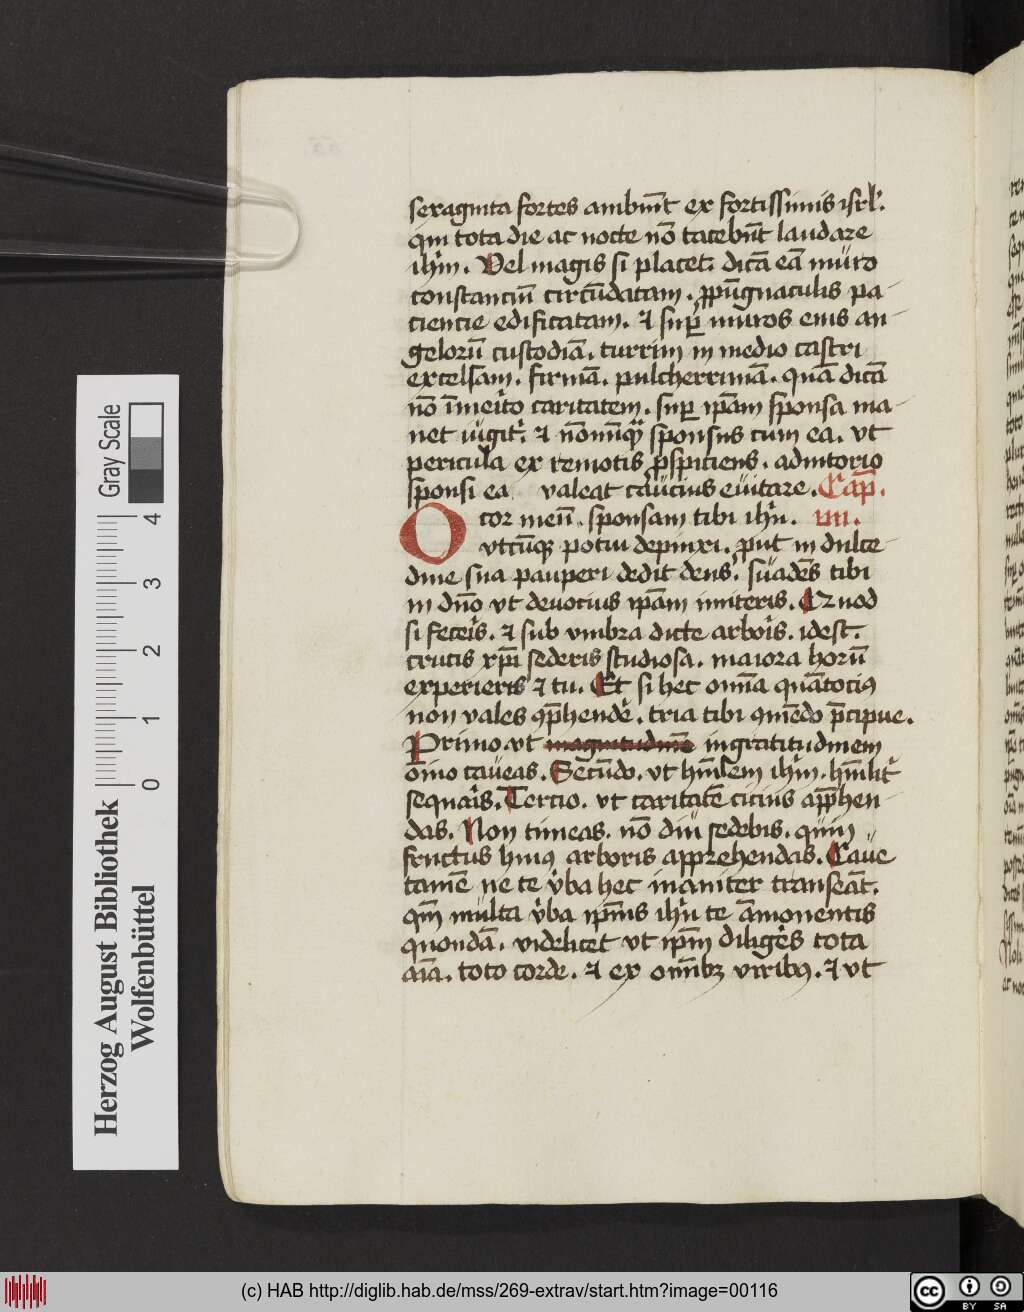 sexaginta fortes ambiu͞t ex fortissimis isrl̕.
qui tota die ac nocte nō tacebūt laudare
ih̄m. Vel magis si placet. dicā eā muro
constanciū circūdatam. ꝓpūgnaculis pa-
ciencie edificatam. ⁊ suꝑ muros eius an-
gelorū custodiā. turrim in medio castri
excelsam. firmā. pulcherrimā. quā dicā
nō īmeīto caritatem. suꝑ ip̄am sponsa ma-
net iūgit̕. ⁊ nōnūqꝫ sponsus cum ea. vt
pericula ex remotis ꝓspiciens. adiutorio
sponsi ea valeat caucius euitare. Cap̄.
O cor meū. sponsam tibi ih̄u. iiii.
vtcūqꝫ potui depinxi. ꝓut in dulce-
dine sua pauperi dedit deus. suadēs tibi
in dn̄o vt deuocius ip̄am imiteris. Quod
si feceīs. ⁊ sub vmbra dicte arboīs. idest.
crucis xp̄i sederis studiosa. maiora horū
experieris ⁊ tu. Et si hec om̄ia quātociꝰ
non vales ꝯp̄hendē. tria tibi quiēdo p̄cipue.
Primo vt magnitudinē ingratitudinem
om̄o caueas. Secūdo. vt hūilem ih̄m. hūilit̕
sequaīs. Tercio. vt caritatē cicius app̄hen-
das. Non timeas. nō diu sedebis. quin
fructus huiꝰ arboris apprehendas. Caue
tamē ne te v̕ba hec inaniter transeāt.
qm̄ multa v̕ba ip̄ius ih̄u te āmonentis
quondā. videlicet vt ip̄m diligēs tota
aīa. toto corde. ⁊ ex om̄ibꝫ viribꝰ. ⁊ vt
Gray Scale
4
3
2
1
0
Herzog August Bibliothek
Wolfenbüttel
(c) HAB http://diglib.hab.de/mss/269-extrav/start.htm?image=00116
cc BY SA